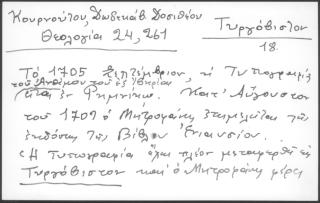 Κουρνούτου, Δωδεκάβ. Δοσιθέου
Θεολογία 24, 261
Τυργόβιστον
18.
Τό 1705 Σεπτέμβριον, ἡ Τυπογραφία
τοῦ Ἀνθίμου τοῦ ἐξ Ἰβηρίας
εἶναι ἐν Ρημνίκῳ. Κατ' Αὔγουστον
τοῦ 1709 ὁ Μητροφάνης ἐπιμελεῖται τῆς
ἐκδόσεως τῆς Βίβλου Ἐνιαυσίου.
Ἡ Τυπογραφία ἔχει πλέον μεταφερθῆ εἰς
Τυργόβιστον καί ὁ Μητροφάνης φέρει